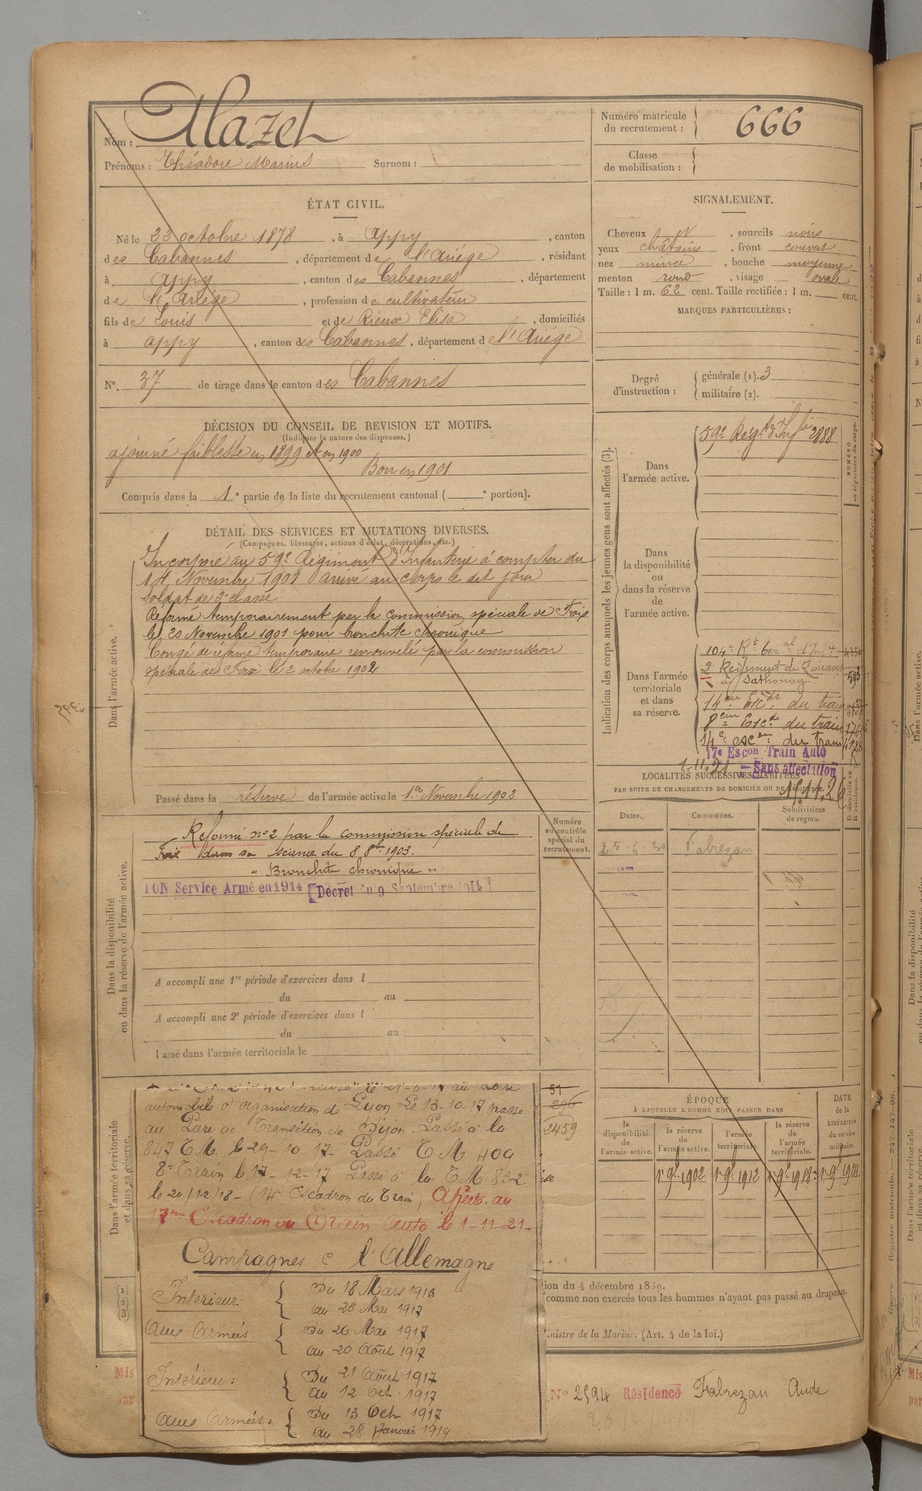 Nom : Alazet
Prénoms : Théodore Marius Surnom :
Numéro matricule du recrutement : 666
Classe de mobilisation :
ÉTAT CIVIL.
Né le 23 octobre 1878, à Appy, canton
des Cabannes, département de l'Ariège, résidant
à Appy, canton des Cabannes, département
de l'Ariège, profession de cultivateur
fils de Louis et de Rieux Elisa, domiciliés
à Appy, canton des Cabannes, département de l'Ariège
N° 37 de tirage dans le canton des Cabannes
SIGNALEMENT.
Cheveux et, sourcils noirs
yeux châtains, front couvert
nez mince, bouche moyenne
menton rond, visage ovale
Taille : 1 m. 62 cent. Taille rectifiée : 1 m. cent.
MARQUES PARTICULIÈRES :
Degré d'instruction : générale (1). 3
militaire (2).
DÉCISION DU CONSEIL DE REVISION ET MOTIFS.
(Indiquer la nature des dispenses.)
ajourné faiblesse en 1899 et en 1900
Bon en 1901
Compris dans la 1e partie de la liste du recrutement cantonal ( e portion).
DÉTAIL DES SERVICES ET MUTATIONS DIVERSES.
(Campagnes, blessures, actions d'éclat, décorations, etc.)
Dans l'armée active.
Incorporé au 59e Régiment d'Infanterie à compter du
14 Novembre 1901 arrivé au corps le dit jour
soldat de 2e classe
Réformé temporairement par la commission spéciale de Foix
le 20 Novembre 1901 pour bronchite chronique
Congé de réforme temporaire renouvelé par la commission
spéciale de Foix le 2 octobre 1902
Passé dans la réserve de l'armée active le 1er Novembre 1902
Indication des corps auxquels les jeunes gens sont affectés (3).
Dans l'armée active.
59e Régt d'Infie 2888
Dans la disponibilité ou dans la réserve de l'armée active.
Dans l'armée territoriale et dans sa réserve.
104e Rt Teral d'Infie
2e Régiment de Zouaves 593
à Sathonay
14eme Escon du train
8eme Escon du train
14e escon du train
17e Escon Train Auto
1.11.21 Sans affectation
Dans la disponibilité ou dans la réserve de l'armée active.
Réformé n°2 par la commission spéciale de
Foix dans sa séance du 8 8bre 1903.
"Bronchite chronique"
BON Service Armé en 1914 [Décret du 9 Septembre 1914]
A accompli une 1re période d'exercices dans l
du au
A accompli une 2e période d'exercices dans l
du au
Passé dans l'armée territoriale le
Numéro au contrôle spécial du recrutement.
LOCALITÉS SUCCESSIVES HABITÉES
PAR SUITE DE CHANGEMENTS DE DOMICILE OU DE RÉSIDENCE.
Dates. Communes. Subdivisions de région.
Fabrezan
Dans l'armée territoriale et dans sa réserve.
automobile d'organisation de Lyon Le 13-10-17 passe
au Parc de Transition de Dijon. Passé à la
847 T.M. le 29-10-17- Passé T M 409
8e Train le 17-12-17 Passé à la T.M 832
le 20/12/18- (14e Escadron du Train) Affect. au
17eme Escadron du Train auto le 1-11-21-
Campagnes c l'Allemagne
Intérieur { Du 18 Mars 1916
au 25 Mai 1917
aux Armées { Du 26 Mai 1917
au 20 Août 1917
Intérieur : { Du 21 Août 1917
au 12 Oct. 1917
aux Armées : { Du 13 Oct 1917
au 28 Janvier 1919
51
296
2459
ÉPOQUE
À LAQUELLE L'HOMME DOIT PASSER DANS
la disponibilité de l'armée active.
la réserve de l'armée active.
l'armée territoriale.
la réserve de l'armée territoriale.
DATE de la LIBÉRATION du service militaire.
1er 9bre 1902
ion du 4 décembre 1889.
comme non exercés tous les hommes n'ayant pas passé au drapeau
inistre de la Marine. (Art. 4 de la loi.)
N° 2594 Résidence Fabrezan Aude